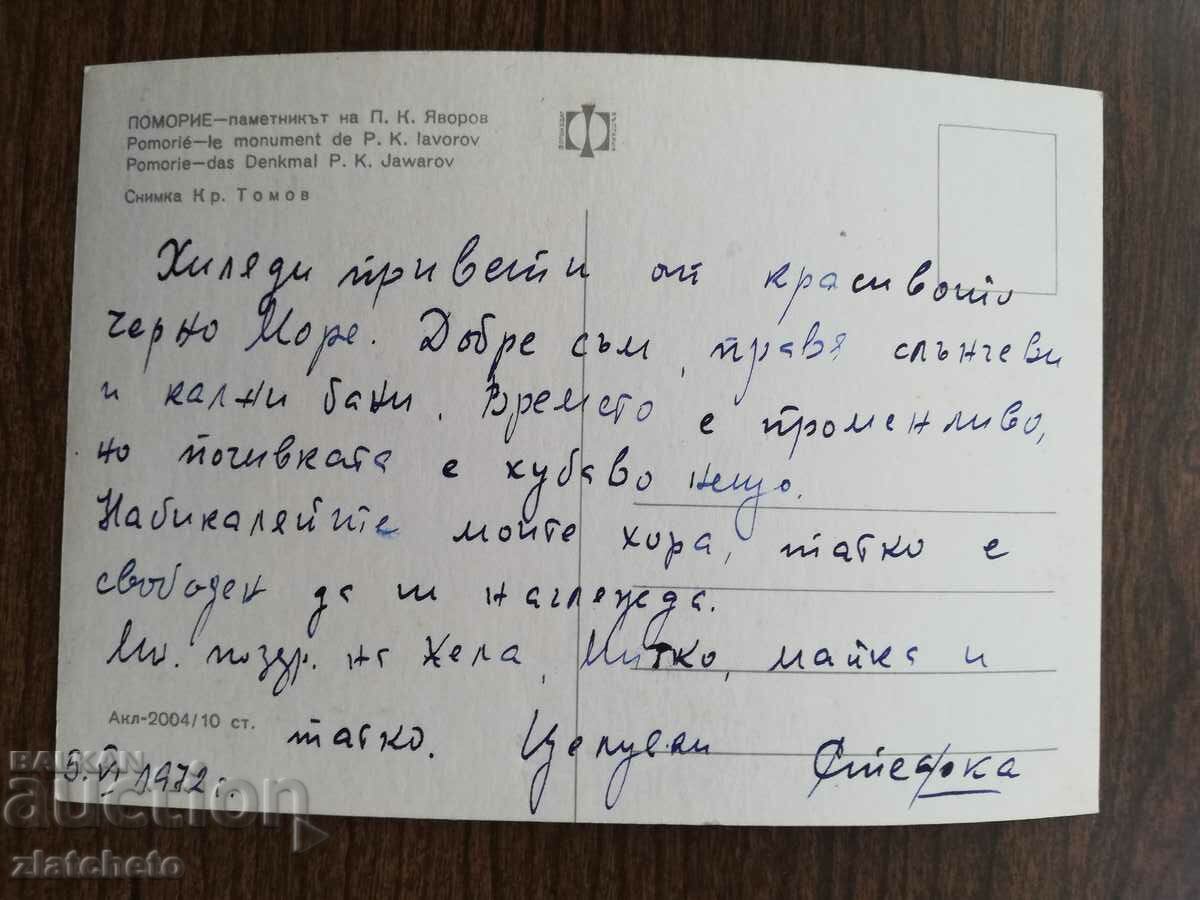 ПОМОРИЕ—паметникът на П. К. Яворов
Pomorié—le monument de P. K. Iavorov
Pomorie—das Denkmal P. K. Jawarov
Снимка Кр. Томов
Хиляди привети от красивото
Черно Море. Добре съм, правя слънчеви
и кални бани. Времето е променливо,
но почивката е хубаво нещо.
Набикаляйте моите хора, татко е
свободен да ги наглежда.
Мн. поздр. на Жела, Митко, майка и
татко. Целувки Стефка
Акл-2004/10 ст.
5. VI 1972 г.
BALKAN
auction
zlatcheto